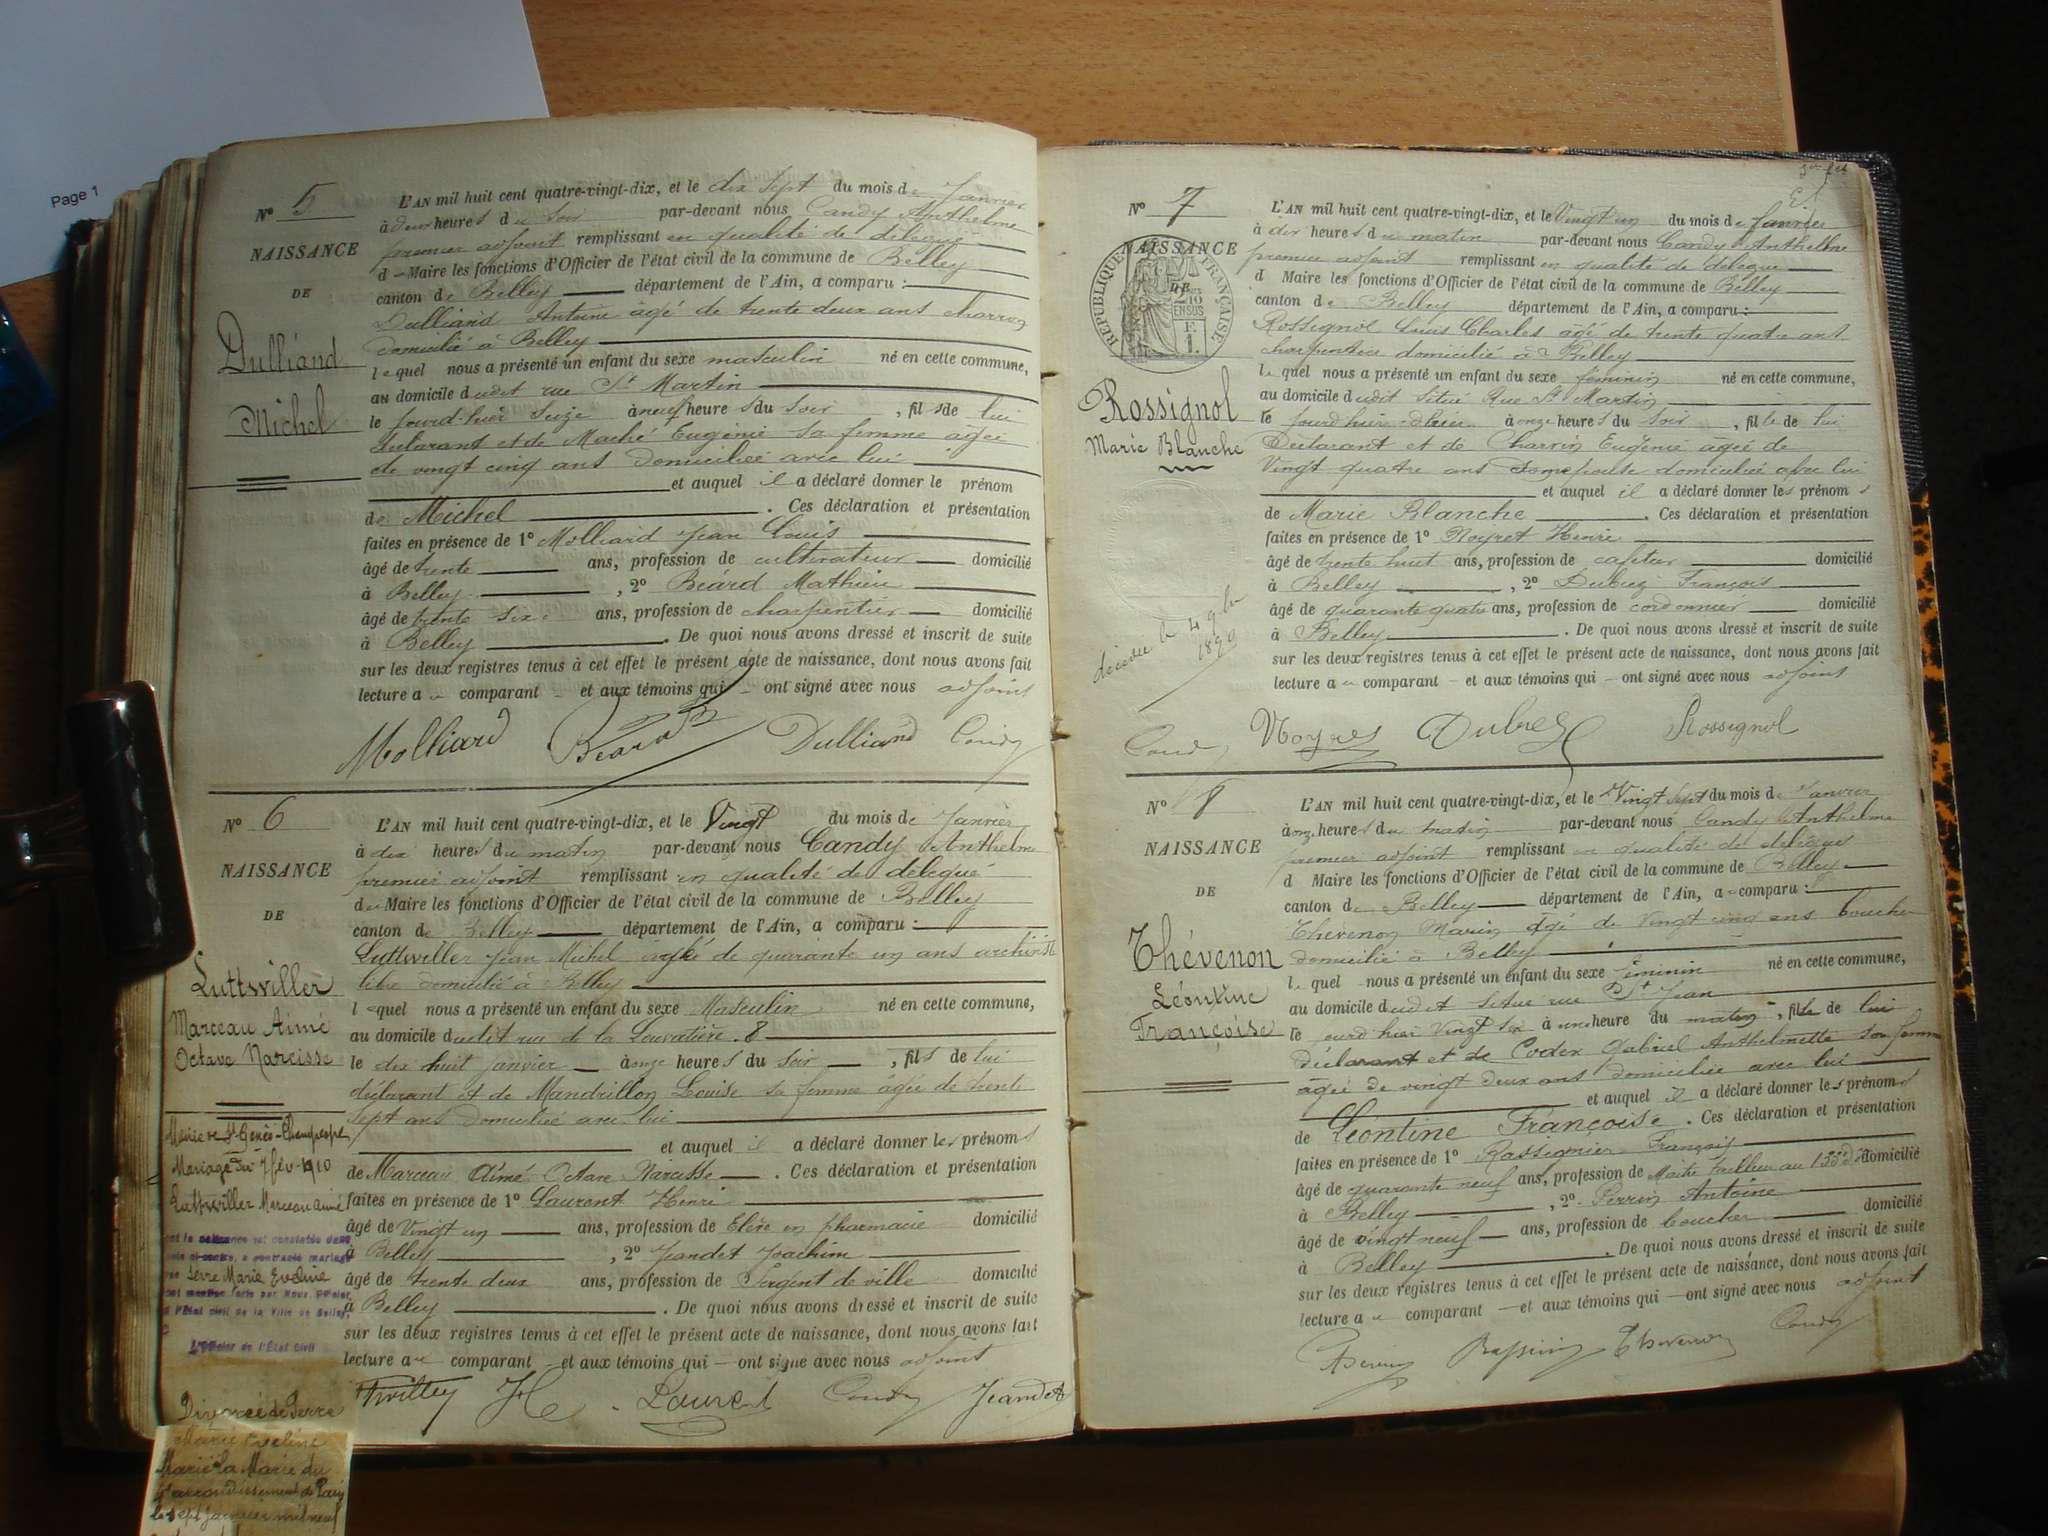 Page 1
N° 5
NAISSANCE
DE
Dulliand
Michel
L'AN mil huit cent quatre-vingt-dix, et le dix sept du mois de Janvier
à deux heures du soir par-devant nous Candy Anthelme
premier adjoint remplissant en qualité de délégué
d Maire les fonctions d'Officier de l'état civil de la commune de Belley
canton de Belley département de l'Ain, a comparu :
Dulliand Antoine âgé de trente deux ans charron
domicilié à Belley
lequel nous a présenté un enfant du sexe masculin né en cette commune,
au domicile dudit rue St Martin
le jourd'hier seize à neuf heures du soir, fils de lui
déclarant et de Maché Eugénie sa femme âgée
de vingt cinq ans domiciliée avec lui
et auquel il a déclaré donner le prénom
de Michel . Ces déclaration et présentation
faites en présence de 1° Molliard Jean Louis
âgé de trente ans, profession de cultivateur domicilié
à Belley , 2° Béard Mathieu
âgé de trente six ans, profession de charpentier domicilié
à Belley . De quoi nous avons dressé et inscrit de suite
sur les deux registres tenus à cet effet le présent acte de naissance, dont nous avons fait
lecture au comparant et aux témoins qui ont signé avec nous adjoint
Molliard Béard Dulliand Candy
N° 6
NAISSANCE
DE
Luttsviller
Marceau Aimé
Octave Narcisse
L'AN mil huit cent quatre-vingt-dix, et le Vingt du mois de Janvier
à dix heures du matin par-devant nous Candy Anthelme
premier adjoint remplissant en qualité de délégué
du Maire les fonctions d'Officier de l'état civil de la commune de Belley
canton de Belley département de l'Ain, a comparu :
Luttsviller Jean Michel âgé de quarante un ans
domicilié à Belley
lequel nous a présenté un enfant du sexe Masculin né en cette commune,
au domicile dudit rue de la Louvatière 8
le dix huit janvier à onze heures du soir, fils de lui
déclarant et de Mandrillon Louise sa femme âgée de trente
sept ans domiciliée avec lui
et auquel il a déclaré donner les prénoms
de Marceau Aimé Octave Narcisse . Ces déclaration et présentation
faites en présence de 1° Laurent Henri
âgé de Vingt un ans, profession de Elève en pharmacie domicilié
à Belley , 2° Jandet Joachim
âgé de trente deux ans, profession de Sergent de ville domicilié
à Belley . De quoi nous avons dressé et inscrit de suite
sur les deux registres tenus à cet effet le présent acte de naissance, dont nous avons fait
lecture au comparant et aux témoins qui ont signé avec nous adjoint
Laurent Candy Jeandet
Mairie de St Genès-Champespe
Mariage du 7 fév. 1910
Luttsviller Marceau Aimé
dont la naissance est constatée dans
l'acte ci-contre, a contracté mariage
avec Serre Marie Eveline
dont mention faite par Nous, Officier
de l'Etat civil de la Ville de Belley,
L'Officier de l'Etat Civil
Divorcé de Serre
Marie Eveline
Marié à la Mairie du
arrondissement de Paris
le sept janvier mil neuf
N° 7
NAISSANCE
DE
RÉPUBLIQUE FRANÇAISE
Rossignol
Marie Blanche
décédée le 4 9bre
1890
L'AN mil huit cent quatre-vingt-dix, et le Vingt un du mois de Janvier
à dix heures du matin par-devant nous Candy Anthelme
premier adjoint remplissant en qualité de délégué
d Maire les fonctions d'Officier de l'état civil de la commune de Belley
canton de Belley département de l'Ain, a comparu :
Rossignol Louis Charles âgé de trente quatre ans
charpentier domicilié à Belley
lequel nous a présenté un enfant du sexe féminin né en cette commune,
au domicile dudit situé Rue St Martin
le jourd'hier à onze heures du soir, fille de lui
Déclarant et de Charvin Eugénie âgée de
Vingt quatre ans son épouse domiciliée avec lui
et auquel il a déclaré donner les prénoms
de Marie Blanche . Ces déclaration et présentation
faites en présence de 1° Noyret Henri
âgé de trente huit ans, profession de cafetier domicilié
à Belley , 2° Dubrez François
âgé de quarante quatre ans, profession de cordonnier domicilié
à Belley . De quoi nous avons dressé et inscrit de suite
sur les deux registres tenus à cet effet le présent acte de naissance, dont nous avons fait
lecture au comparant et aux témoins qui ont signé avec nous adjoint
Candy Noyret Dubrez Rossignol
N° 8
NAISSANCE
DE
Thévenon
Léontine
Françoise
L'AN mil huit cent quatre-vingt-dix, et le Vingt Sept du mois de Janvier
à onze heures du matin par-devant nous Candy Anthelme
premier adjoint remplissant en qualité de délégué
d Maire les fonctions d'Officier de l'état civil de la commune de Belley
canton de Belley département de l'Ain, a comparu :
Thévenon Marin âgé de Vingt cinq ans boucher
domicilié à Belley
lequel nous a présenté un enfant du sexe féminin né en cette commune,
au domicile dudit situé rue St Jean
le jourd'hier Vingt six à une heure du matin, fille de lui
déclarant et de Gabriel Anthelmette son femme
âgée de vingt deux ans domiciliée avec lui
et auquel il a déclaré donner les prénoms
de Léontine Françoise . Ces déclaration et présentation
faites en présence de 1° Rassignier François
âgé de quarante neuf ans, profession de Maître tailleur au 133e domicilié
à Belley , 2° Perrin Antoine
âgé de vingt neuf ans, profession de boucher domicilié
à Belley . De quoi nous avons dressé et inscrit de suite
sur les deux registres tenus à cet effet le présent acte de naissance, dont nous avons fait
lecture au comparant et aux témoins qui ont signé avec nous adjoint
Perrin Thevenon Candy